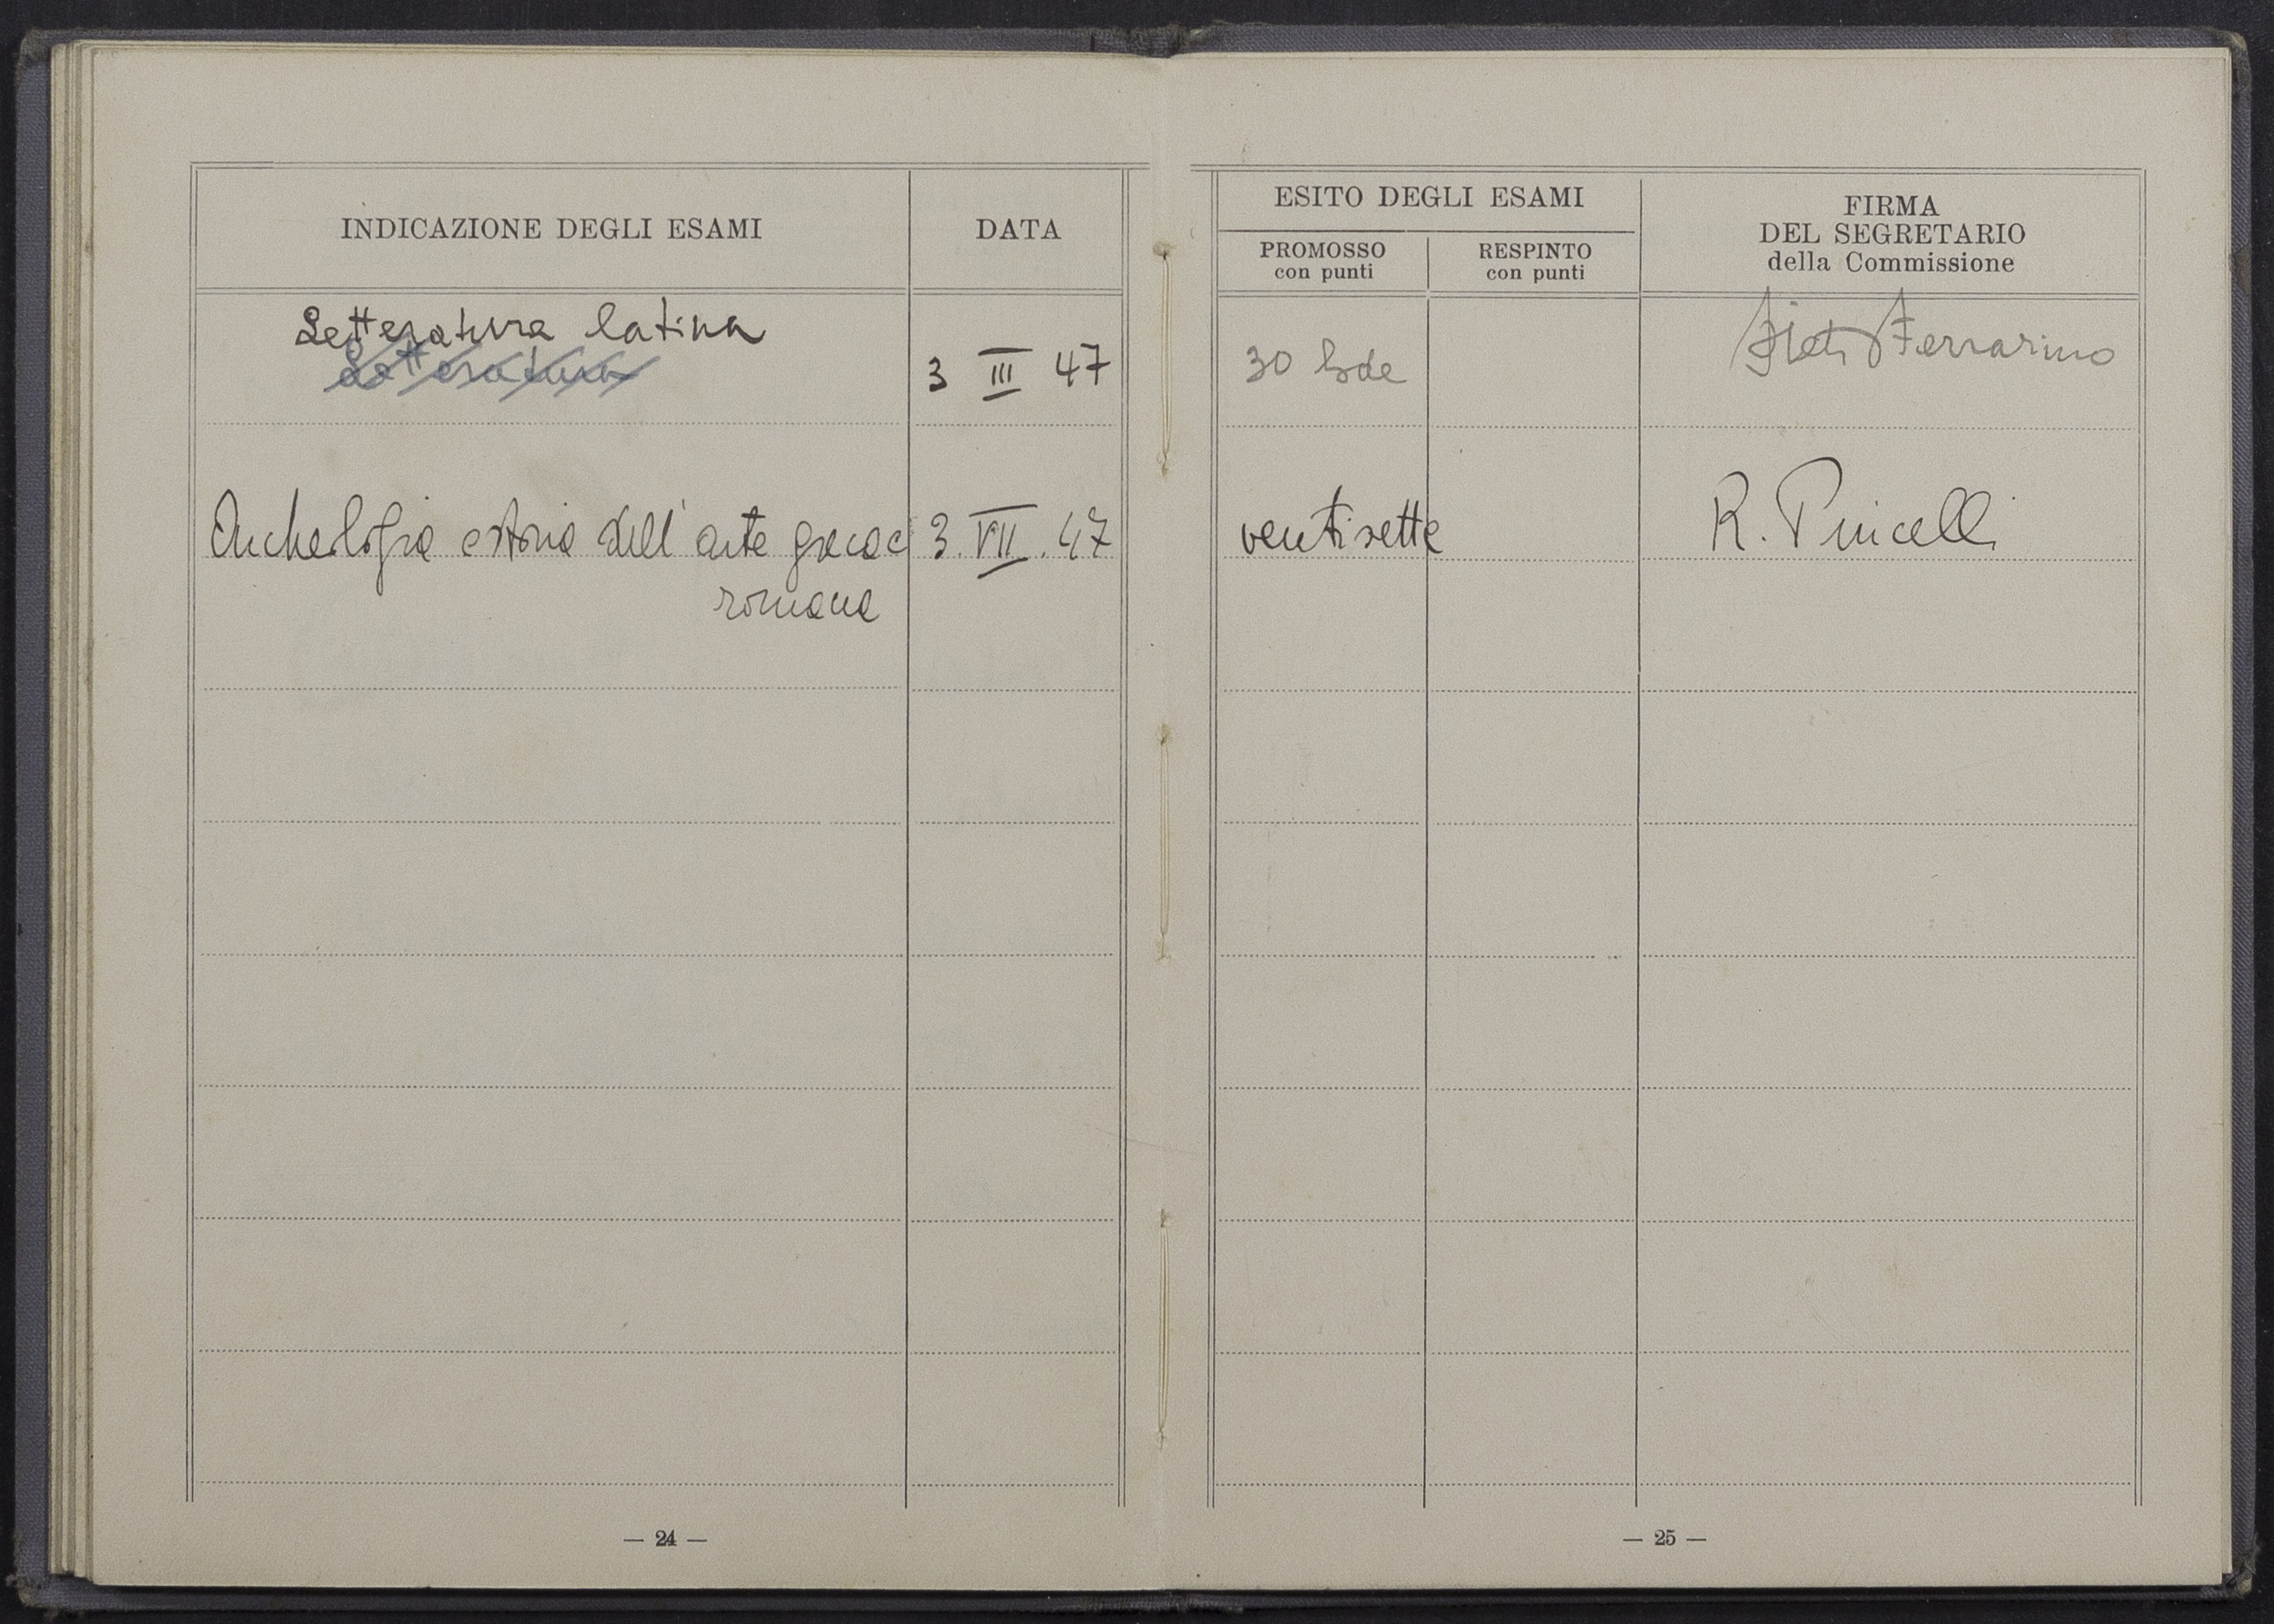 INDICAZIONE DEGLI ESAMI
DATA
Letteratura latina
Letteratura
3 III 47
Archeologia e storia dell'arte greca e
romana
3. VII. 47
— 24 —
ESITO DEGLI ESAMI
PROMOSSO
con punti
RESPINTO
con punti
FIRMA
DEL SEGRETARIO
della Commissione
30 lode
Ferrarino
ventisette
R.
— 25 —